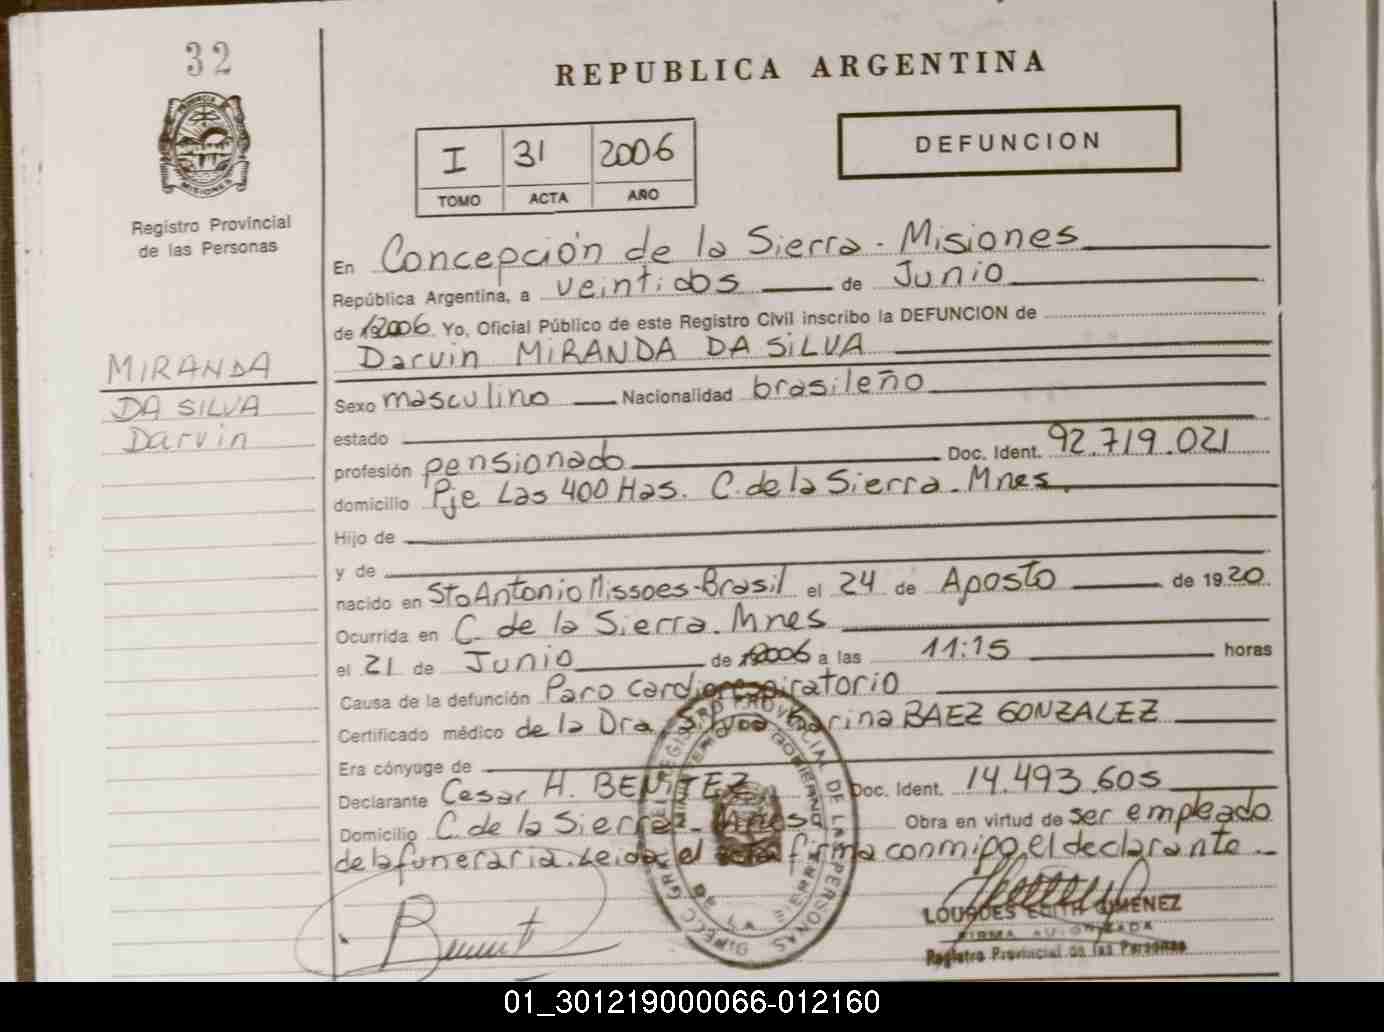 32
REPUBLICA ARGENTINA
PROVINCIA
MISIONES
Registro Provincial
de las Personas
I 31 2006
TOMO ACTA AÑO
DEFUNCION
En Concepción de la Sierra - Misiones
República Argentina, a veintidos de Junio
de 2006. Yo, Oficial Público de este Registro Civil inscribo la DEFUNCION de
Darvin MIRANDA DA SILVA
MIRANDA
DA SILVA
Darvin
Sexo masculino Nacionalidad brasileño
estado
profesión pensionado Doc. Ident. 92.719.021
domicilio Pje Las 400 Has. C. de la Sierra - Mnes.
Hijo de
y de
nacido en Sto Antonio Missoes - Brasil el 24 de Agosto de 1920.
Ocurrida en C. de la Sierra. Mnes
el 21 de Junio de 2006 a las 11:15 horas
Causa de la defunción Paro cardiorespiratorio
Certificado médico de la Dra. Karina BAEZ GONZALEZ
Era cónyuge de
Declarante Cesar H. BENITEZ Doc. Ident. 14.493.605
Domicilio C. de la Sierra - Mnes Obra en virtud de ser empleado
de la funeraria. Leida el acta firma conmigo el declarante. -
DIRECC. GRAL. DEL REGISTRO PROVINCIAL DE LAS PERSONAS
MINISTERIO DE GOBIERNO
DE LA SIERRA
LOURDES EDITH GIMENEZ
FIRMA AUTORIZADA
Registro Provincial de las Personas
01_301219000066-012160